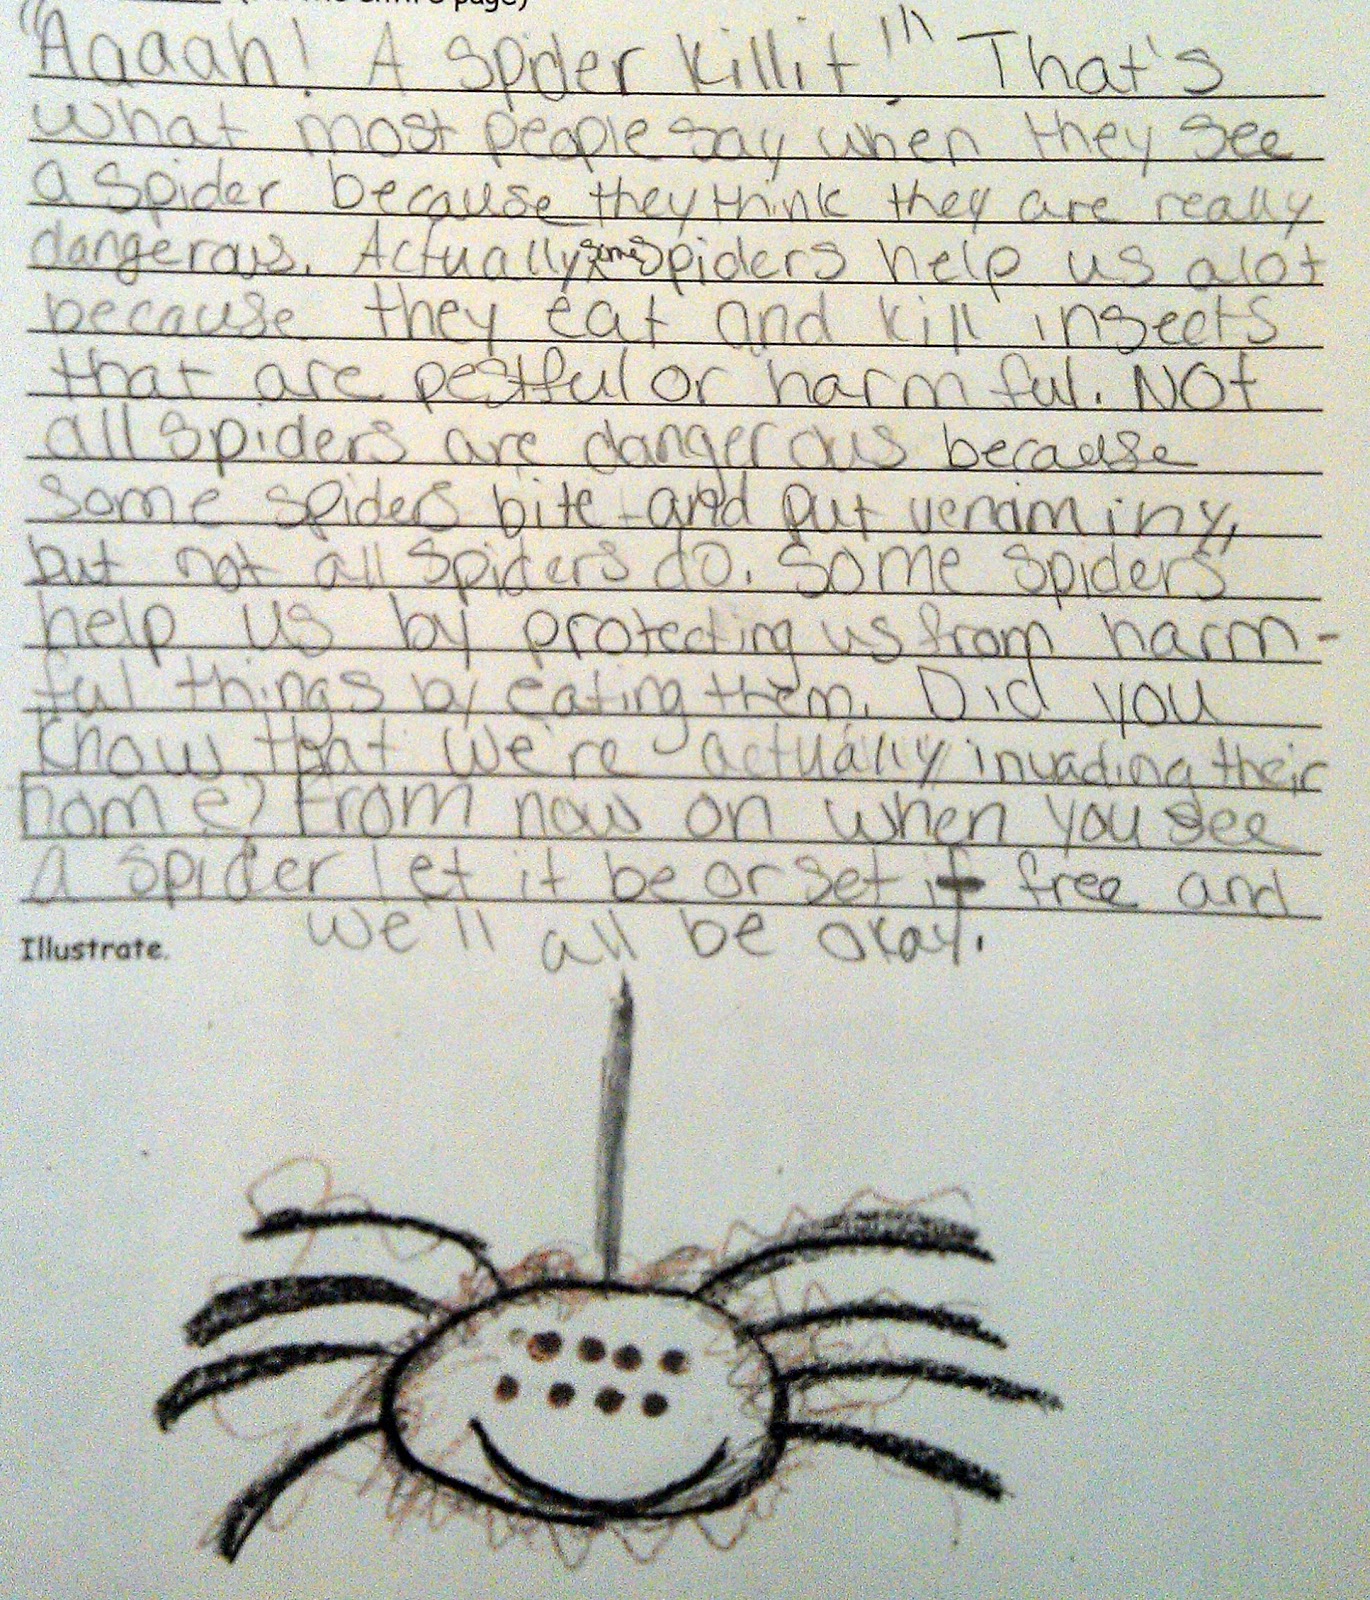 "Aaaah! A spider kill it!" That's
what most people say when they see
a spider because they think they are really
dangerous. Actually some spiders help us alot
because they eat and kill insects
that are pestful or harmful. Not
all spiders are dangerous because
some spiders bite and put venom in y,
but not all spiders do. Some spiders
help us by protecting us from harm-
ful things by eating them. Did you
know that we're actually invading their
home? From now on when you see
a spider let it be or set it free and
we'll all be okay.
Illustrate.